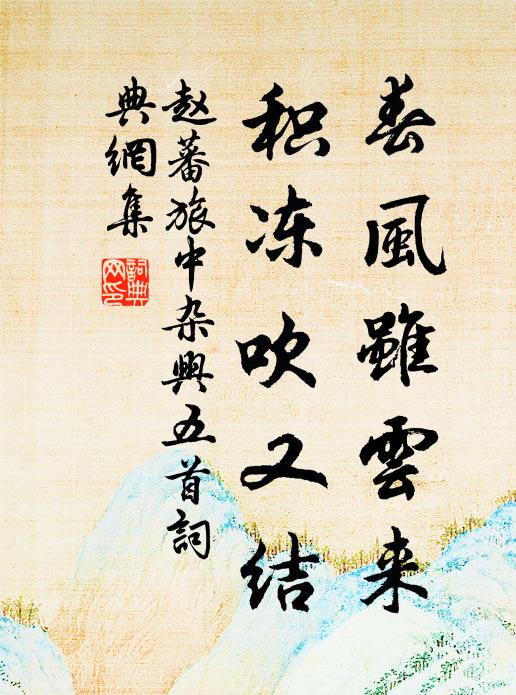 春風雖雲来
积冻吹又结
赵蕃旅中杂興五首詞
典網集
詞典
网印